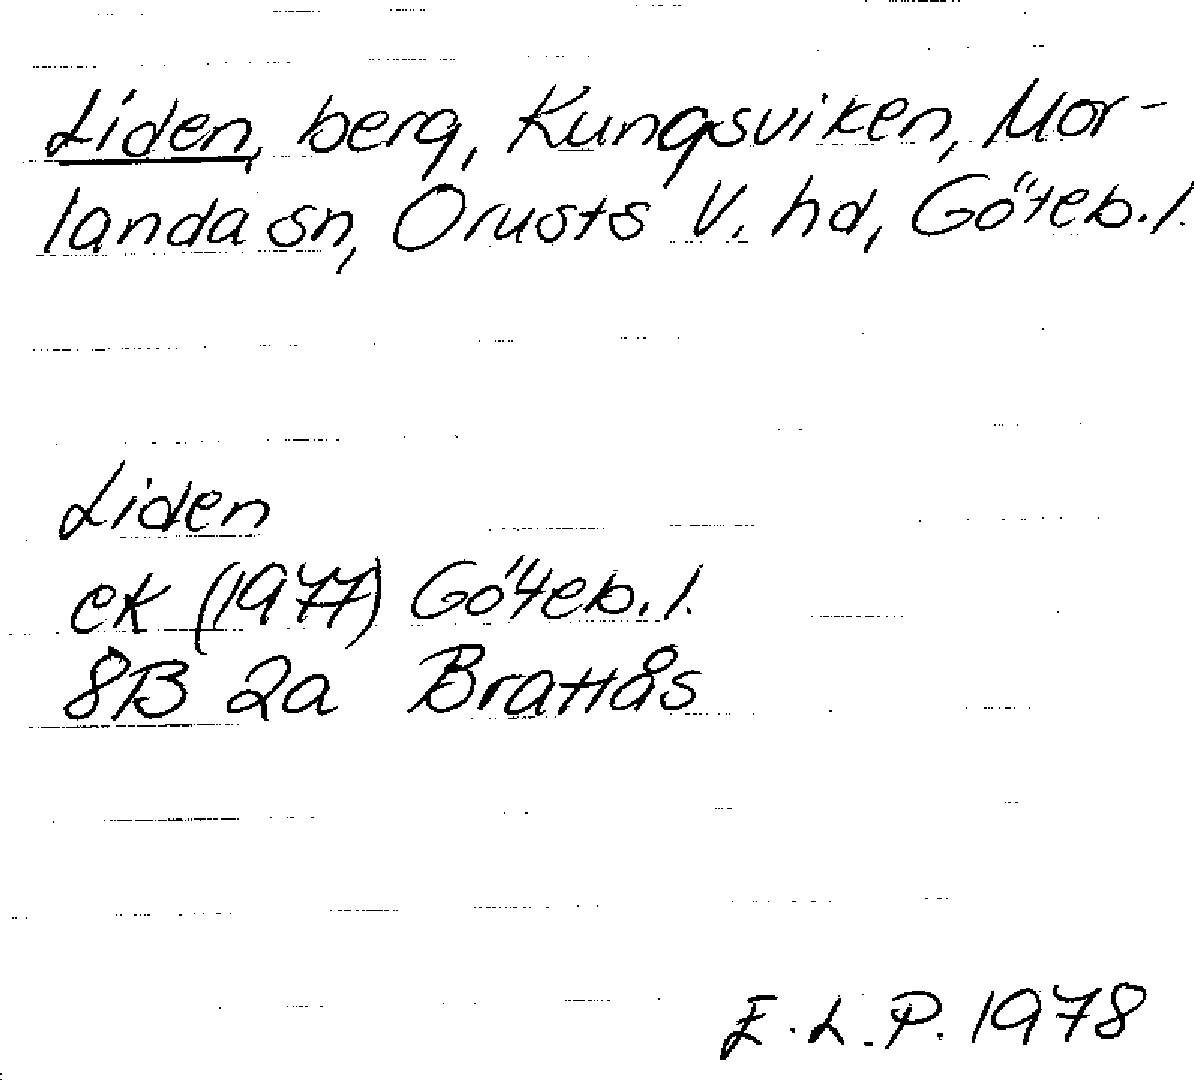 Liden, berg, Kungsviken, Mor-
landa sn, Orusts V. hd, Göteb. l.
Liden
ek (1977) Göteb. l.
8B 2a Brattås
E. L. P. 1978